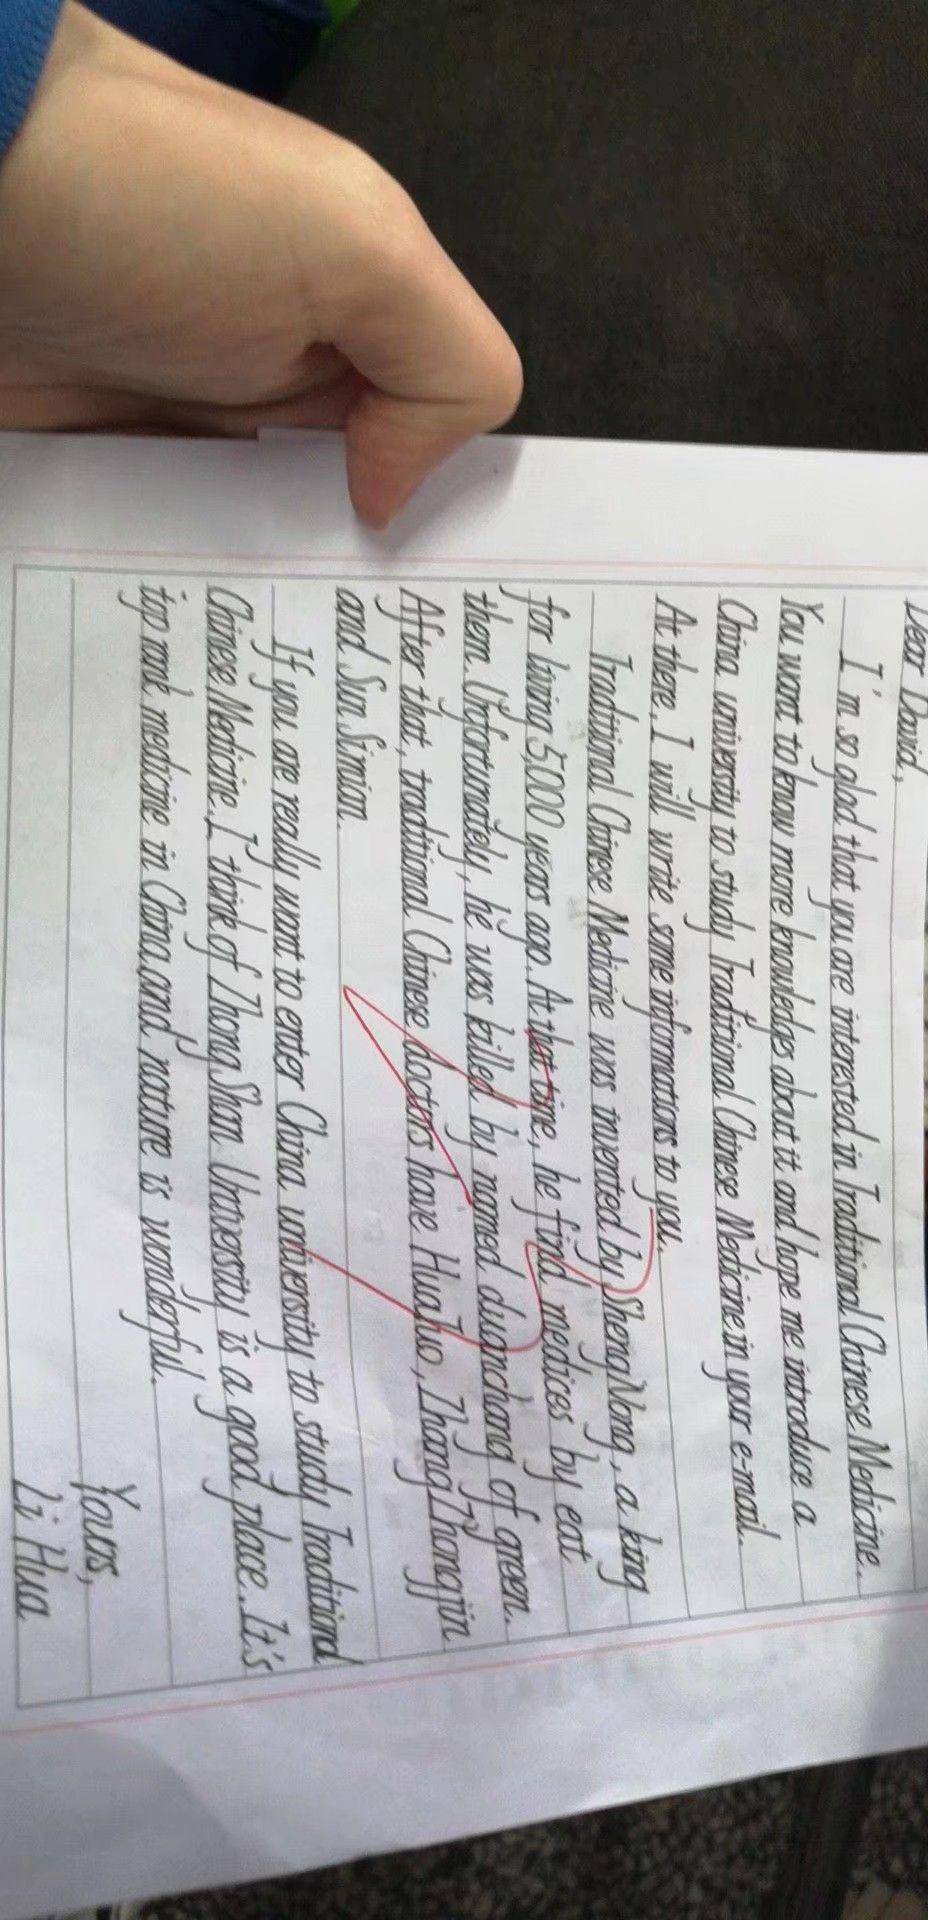 Dear David,
I'm so glad that you are interested in Traditional Chinese Medicine.
You want to know more knowledges about it and hope me introduce a
China university to study Traditional Chinese Medicine in your e-mail.
At there, I will write some informations to you.
Traditional Chinese Medicine was invented by ShengNong, a king
for living 5,000 years ago. At that time, he find medices by eat
them. Unfortunately, he was killed by named duanchang of green.
After that, traditional Chinese doctors have HuaTuo, ZhangZhongjin
and Sun Simian.
If you are really want to enter China university to study Traditional
Chinese Medicine. I think of ZhongShan University is a good place. It's
top rank medicine in China, and nature is wonderful.
Yours,
Li Hua